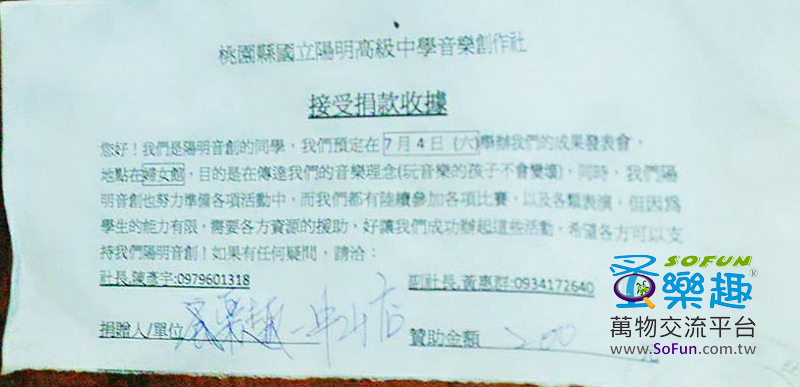 桃園縣國立陽明高級中學音樂創作社
接受捐款收據
您好！我們是陽明音創的同學，我們預定在 7 月 4 日 (六)舉辦我們的成果發表會，
地點在婦女館，目的是在傳達我們的音樂理念(玩音樂的孩子不會變壞)，同時，我們陽
明音創也努力準備各項活動中，而我們都有陸續參加各項比賽，以及各類表演，但因為
學生的能力有限，需要各方資源的援助，好讓我們成功辦起這些活動，希望各方可以支
持我們陽明音創！如果有任何疑問，請洽：
社長,陳彥宇:0979601318 副社長,黃惠群:0934172640
捐贈人/單位 蛋樂趣-中山店 贊助金額 200
SOFUN
蛋樂趣®
萬物交流平台
www.SoFun.com.tw